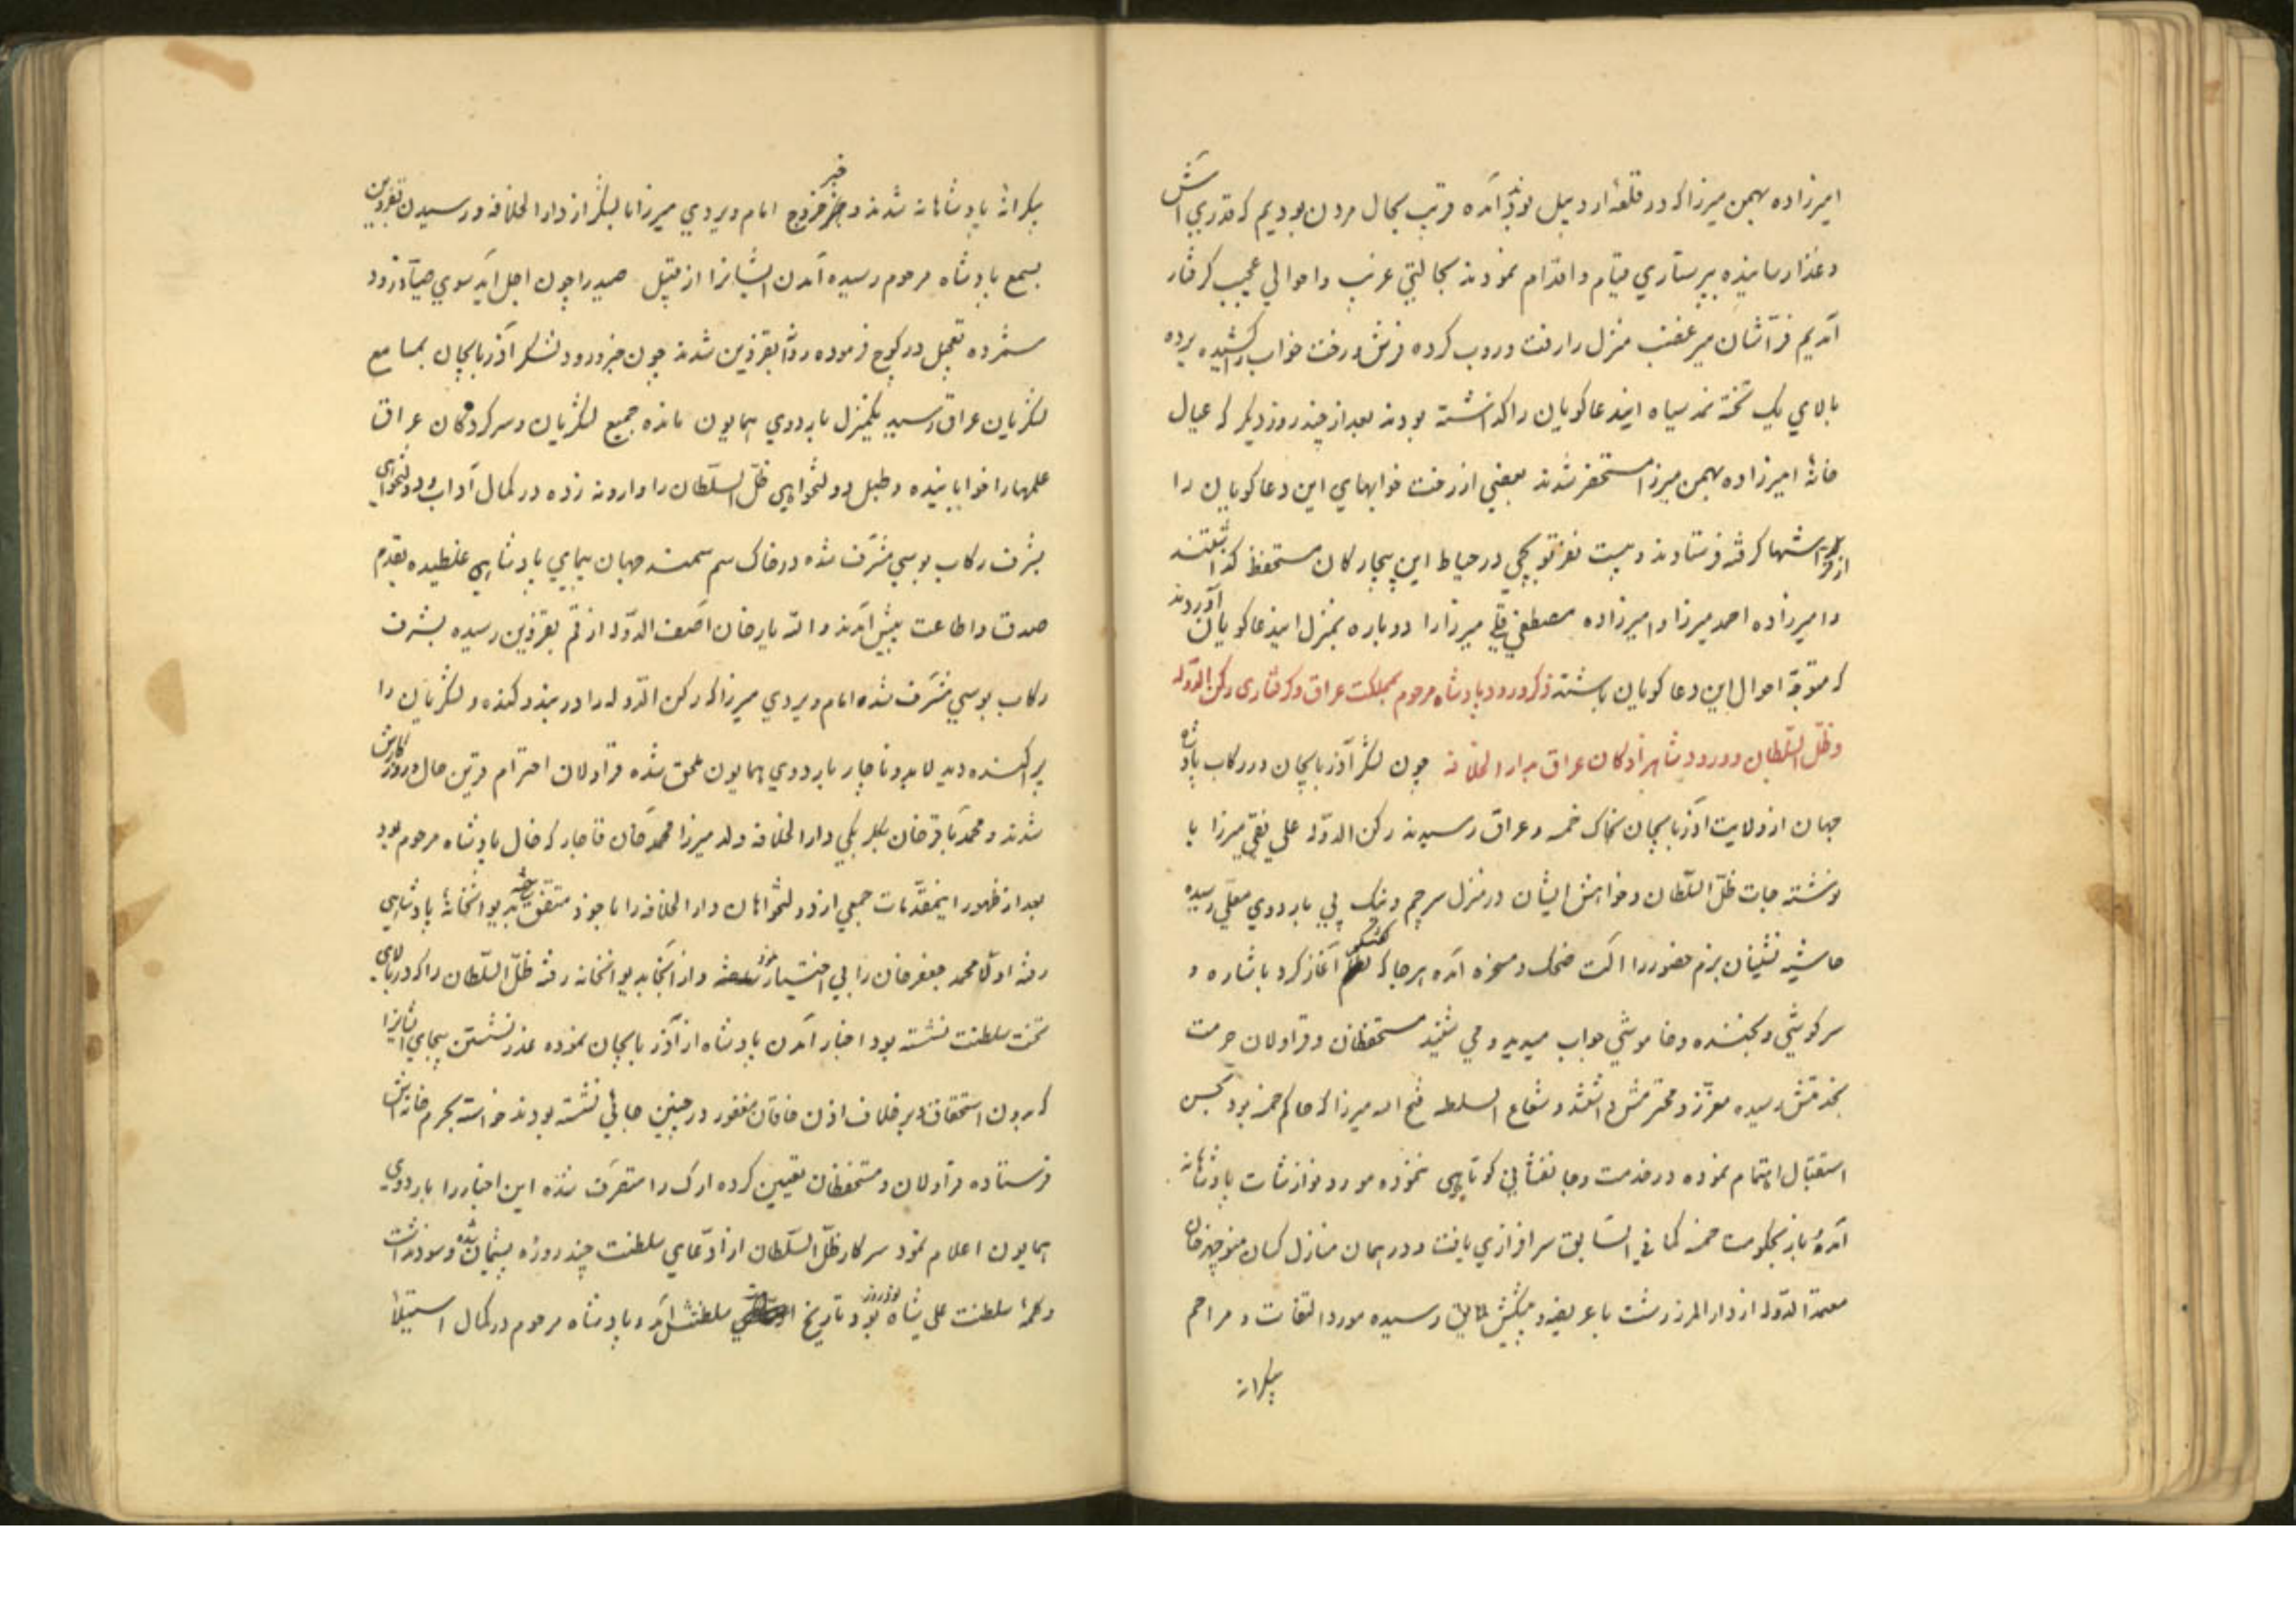 امیرزاده بهمن میرزا که در قلعهٔ اردبیل بودند آمده قریب بحال مردن بودیم که قدری آش
و غذا رسانیده بپرستاری قیام و اقدام نمودند بحالتی غریب و احوالی عجیب گرفتار
آمدیم فرّاشان میر غضب منزل را رفت و روب کرده فرش و رخت خواب را کشیده برده
بالای یک تخته نمد سیاه ایندعاگویان را گذاشته بودند بعد از چند روز دیگر که عیال
خانهٔ امیرزاده بهمن میرزا مستحضر شدند بعضی از رخت خوابهای این دعاگویان را
از فراشها گرفته فرستادند و بیست نفر توپچی در حیاط این بیچارگان مستحفظ گذاشتند
و امیرزاده احمد میرزا و امیرزاده مصطفی قلی میرزا را دوباره بمنزل ایندعاگویان آوردند
که متوجّه احوال این دعاگویان باشند ذکر ورود پادشاه مرحوم بمملکت عراق و گرفتاری رکن الدوله
و ظلّ السّلطان و ورود شاهزادگان عراق بدار الخلافه چون لشکر آذربایجان در رکاب پادشاه
جهان از ولایت آذربایجان بخاک خمسه و عراق رسیدند رکن الدوّله علی نقی میرزا با
نوشته جات ظلّ السّلطان و خواهش ایشان در منزل سرچم و نیک پی باردوی معلّی رسیده
حاشیه نشینان بزم حضور را آلت ضحک و سخره آمده هر جا که آغاز کرد باشاره و
سرگوشی و بخنده و خاموشی جواب میدید و می شنید مستحفظان و قراولان حرمت
بخدمتش رسیده معزّز و محترمش داشتند و شعاع السلطنه فتح الله میرزا که حاکم خمسه بود بحسن
استقبال اهتمام نموده در خدمت و جانفشانی کوتاهی ننموده مورد نوازشات پادشاهانه
آمده باز بحکومت خمسه کما فی السّابق سرافرازی یافت و در همان منازل کسان منوچهرخان
معتمد الدّوله از دار المرز رشت با عریضه و پیشکش لایق رسیده مورد التفات و مراحم
بیکرانه
بیکرانهٔ پادشاهانه شدند و خبر خروج امام ویردی میرزا با لشکر از دار الخلافه و رسیدن بقزوین
بسمع پادشاه مرحوم رسیده آمدن ایشانرا از قبیل صید را چون اجل آید سوی صیّاد رود
شمرده تعجیل در کوچ فرموده روانهٔ قزوین شدند چون خبر ورود لشکر آذربایجان بمسامع
لشکریان عراق رسید یکمنزل باردوی همایون مانده جمیع لشکریان و سرکردگان عراق
علمها را خوابانیده و طبل دولتخواهی ظلّ السّلطان را وارونه زده در کمال آداب و دولتخواهی
بشرف رکاب بوسی مشرّف شده در خاک سم سمند جهان پیمای پادشاهی غلطیده بقدم
صدق و اطاعت پیش آمدند و الله یارخان آصف الدّوله از قم بقزوین رسیده بشرف
رکاب بوسی مشرّف شده امام ویردی میرزا که رکن الدّوله را در بند و کنده و لشکریان را
پراکنده دید لابد و ناچار باردوی همایون ملحق شده قراولان احترام قرین حال و روزگارش
شدند و محمد باقرخان بیگلربیگی دار الخلافه ولد میرزا محمد خان قاجار که خال پادشاه مرحوم بود
بعد از ظهور اینمقدّمات جمعی از دولتخواهان دار الخلافه را با خود متفق ساخته بدیوانخانهٔ پادشاهی
رفته اوّلا محمد جعفرخان را بی اختیار نموده و از آنجا بدیوانخانه رفته ظلّ السّلطان را که در بالای
تخت سلطنت نشسته بود اخبار آمدن پادشاه از آذربایجان نموده عذر نشستن بیجای ایشانرا
که بدون استحقاق و بر خلاف اذن خاقان مغفور در چنین جائی نشسته بودند خواسته بحرم خانه اش
فرستاده قراولان و مستحفظان تعیین کرده ارک را متصرّف شده این اخبار را باردوی
همایون اعلام نمود سرکار ظلّ السّلطان از ادّعای سلطنت چند روزه پشیمان شده و سود نداشت
سلطنت علی شاه نود روز بود تاریخ سلطنتش آمد و پادشاه مرحوم در کمال استیلا